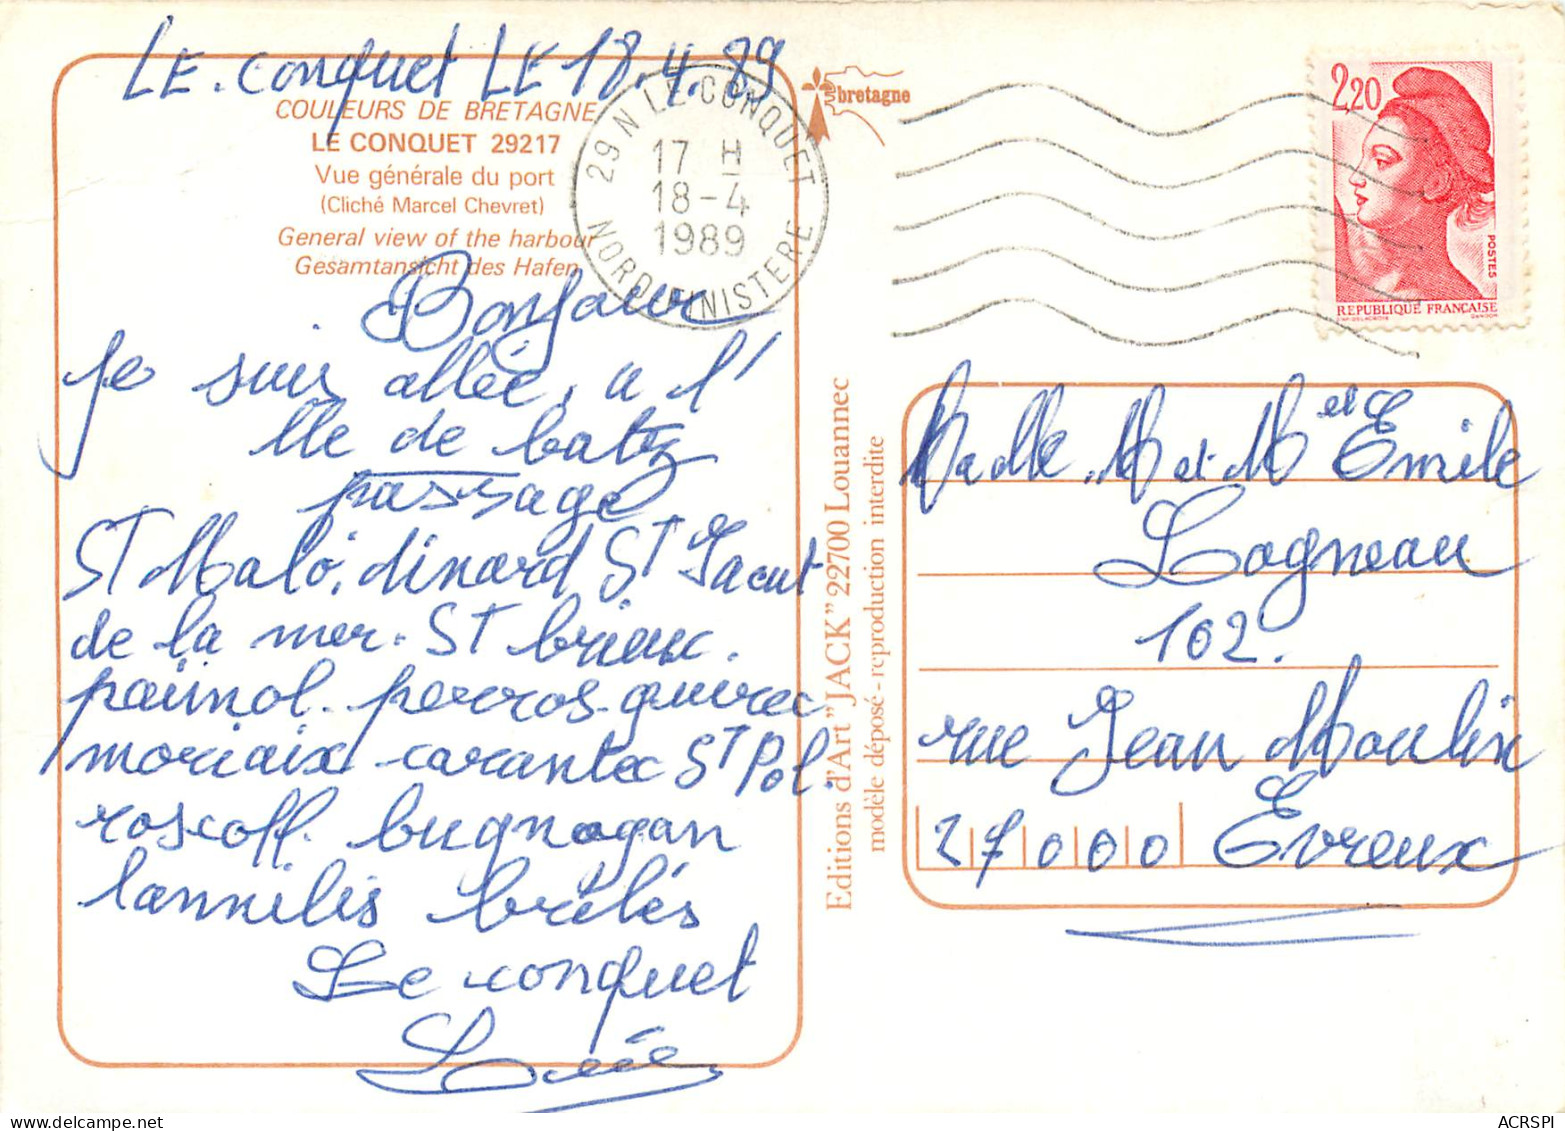 LE. Conquet LE 18.4.89
COULEURS DE BRETAGNE
LE CONQUET 29217
Vue générale du port
(Cliché Marcel Chevret)
General view of the harbour
Gesamtansicht des Hafen
29 N LE CONQUET
17 H
18-4
1989
NORD-FINISTERE
bretagne
2,20
POSTES
REPUBLIQUE FRANÇAISE
Bonjour
je suis allée, a l'
Ile de batz
passage
ST Malo, dinard ST Jacut
de la mer. ST brieux.
paimol. perros-guirec
morlaix carantec ST Pol.
roscoff. brugnogan
lannilis brélés
Le conquet
Editions d'Art "JACK" 22700 Louannec
modèle déposé - reproduction interdite
Madlle, M et M et Emile
Lagneau
102.
rue Jean Moulin
27000 Evreux
ACRSPI